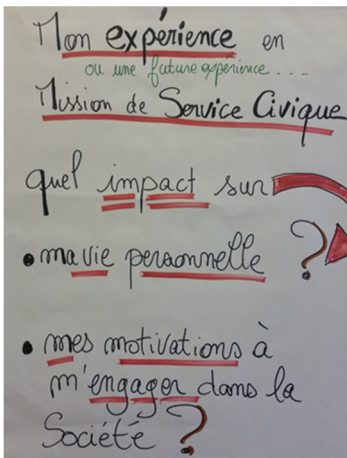 Mon expérience en
ou une future expérience....
Mission de Service Civique
quel impact sur
• ma vie personnelle ?
• mes motivations à
m'engager dans la
Société ?